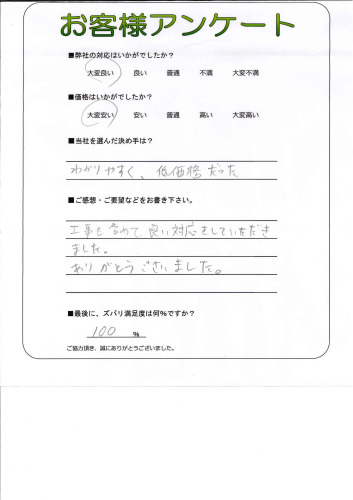 お客様アンケート
■弊社の対応はいかがでしたか？
大変良い 良い 普通 不満 大変不満
■価格はいかがでしたか？
大変安い 安い 普通 高い 大変高い
■当社を選んだ決め手は？
わかりやすく、低価格だった
■ご感想・ご要望などをお書き下さい。
工事も含めて良い対応をしていただき
ました。
ありがとうございました。
■最後に、ズバリ満足度は何%ですか？
100 %
ご協力頂き、誠にありがとうございました。